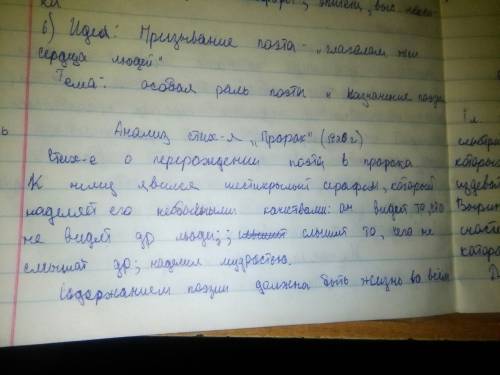 6) Идея: Призывание поэта - „глаголам жги
сердца людей"
Тема: особая роль поэта и назначение поэзии
Анализ стих-я „Пророк" (1826 г)
Стих-е о перерождении поэта в пророка
К нему явился шестикрылый серафим, который
наделяет его необычными качествами: он видит то, что
не видят др люди; слышит то, чего не
слышат др; наделил мудростью.
Содержанием поэзии должна быть жизнь во всём
которы
издеват
которо